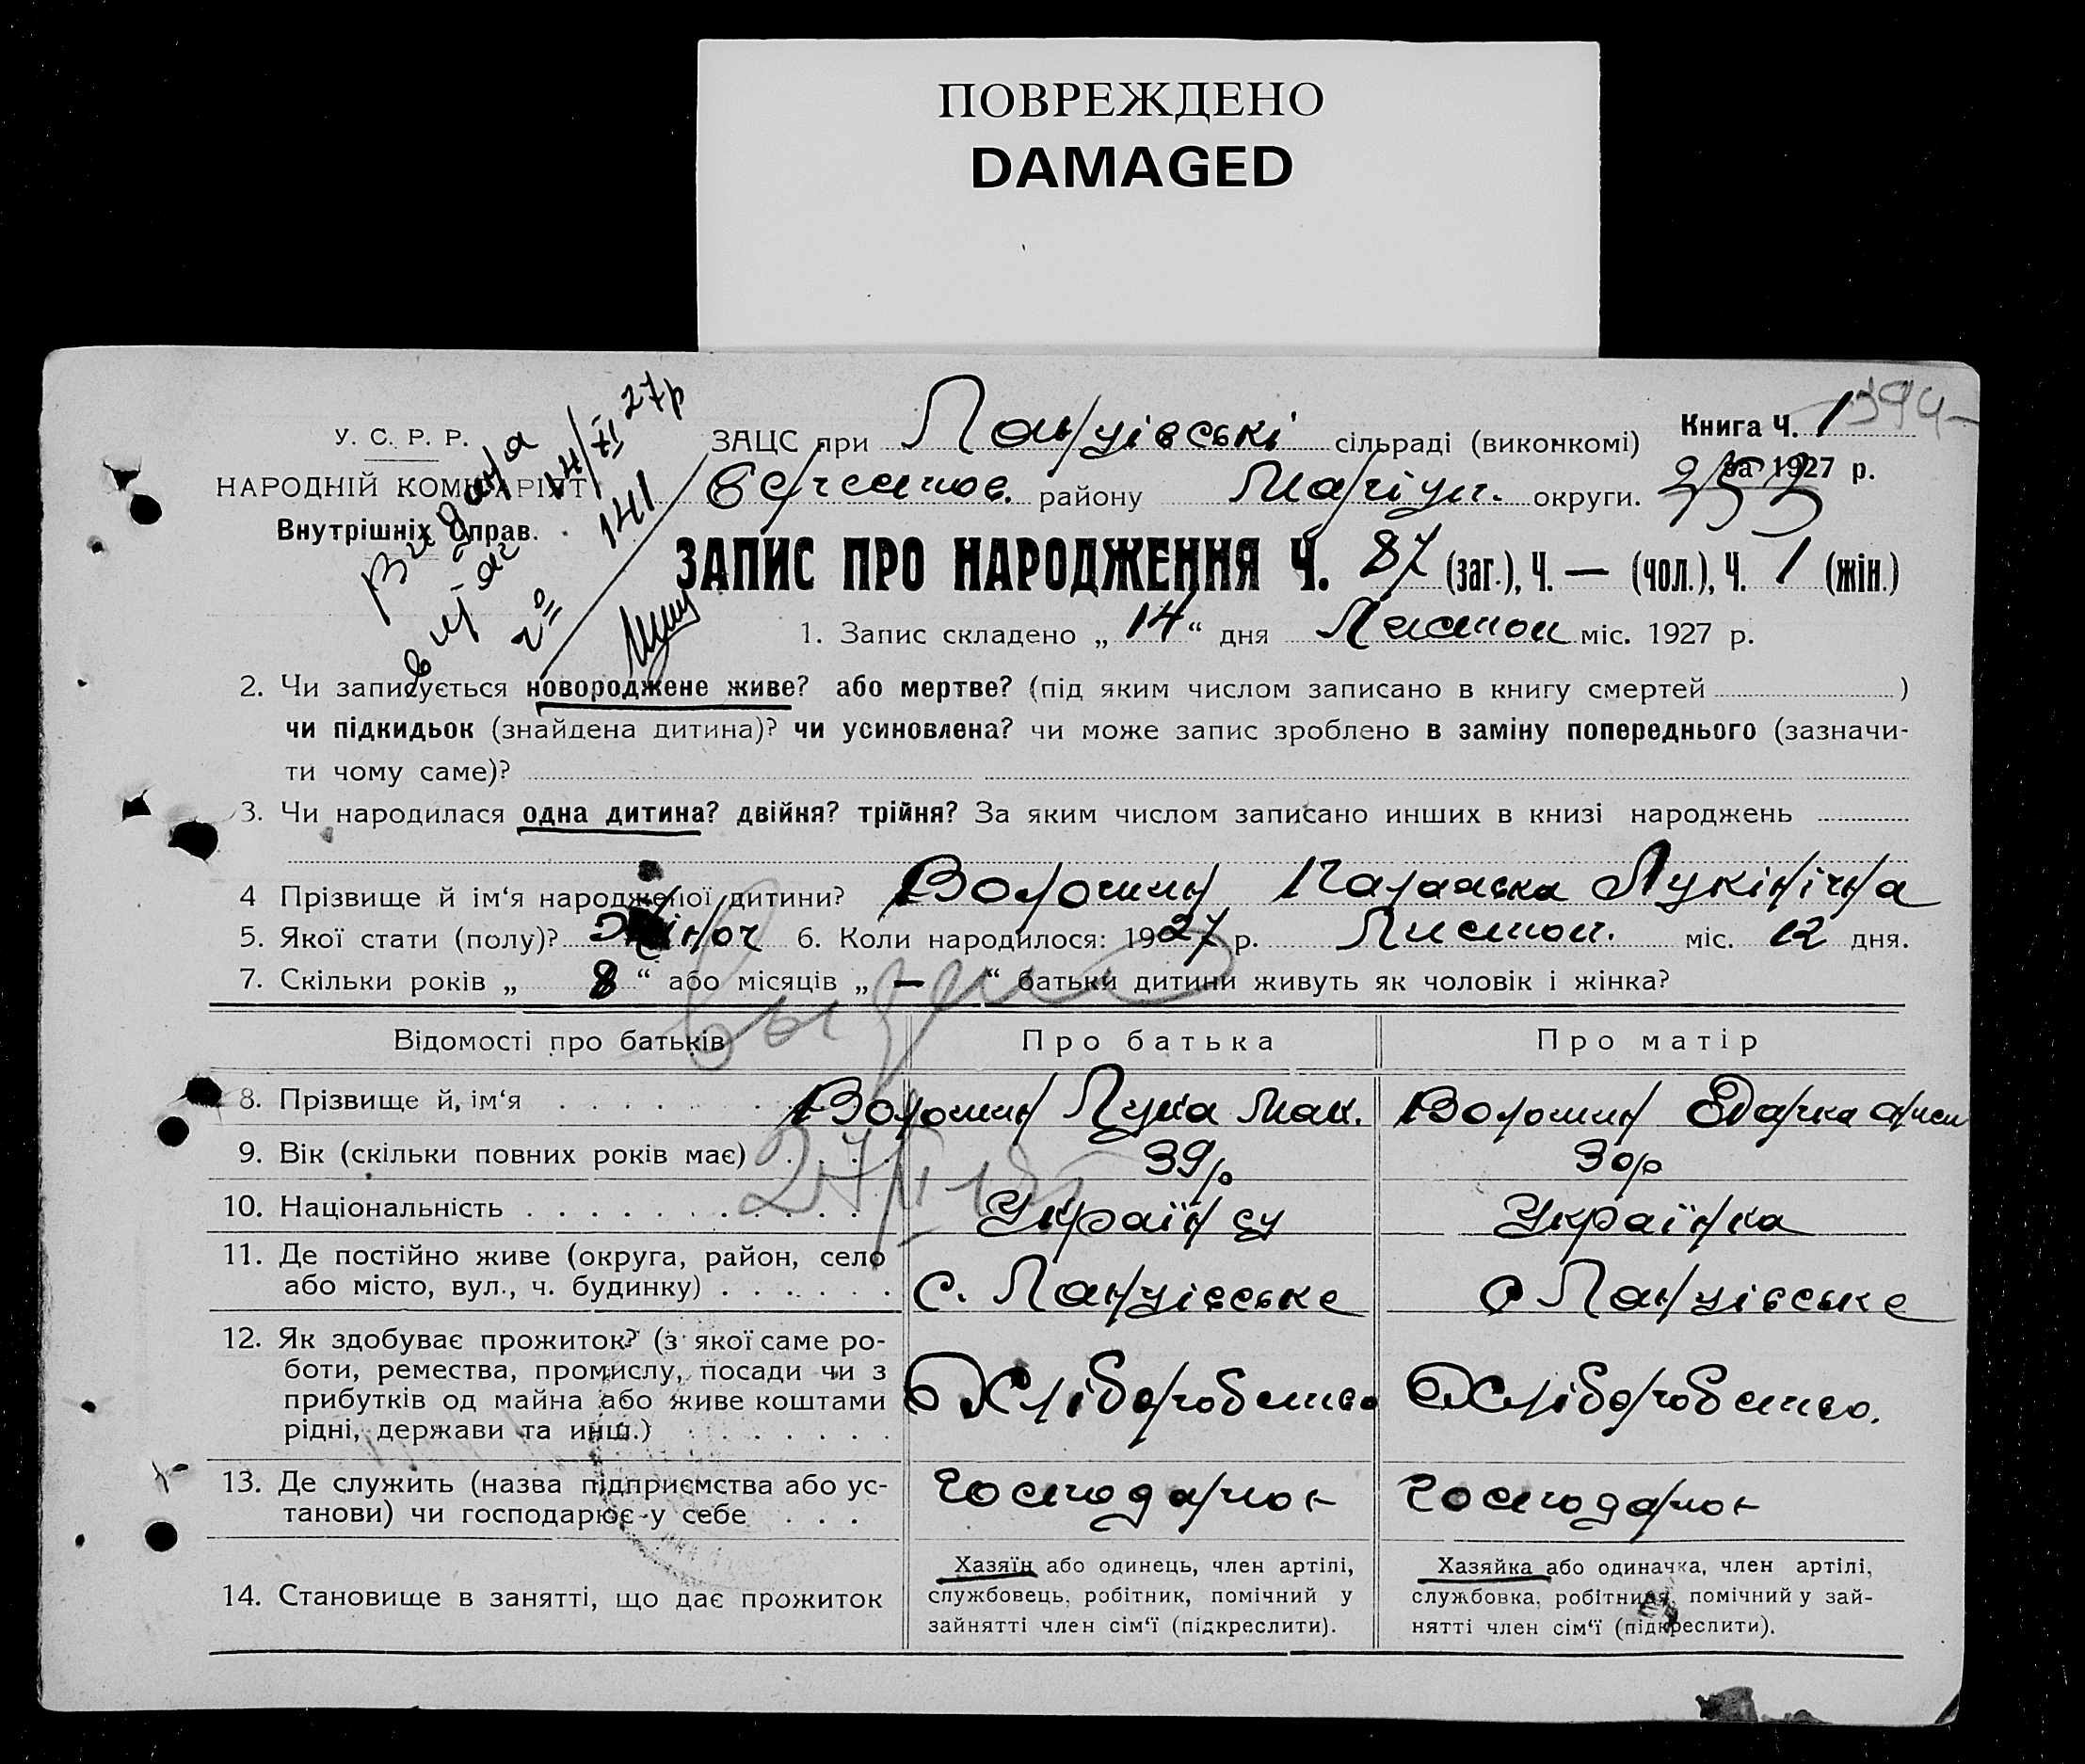 ПОВРЕЖДЕНО
DAMAGED
У. С. Р. Р.
НАРОДНІЙ КОМІСАРІЯТ
Внутрішніх Справ.
Видана
витяг
14/XI 27р
141
ЗАЦС при Ланцівські сільраді (виконкомі)
Книга Ч. 1
394
району Маріуп. округи.
за 1927 р.
ЗАПИС ПРО НАРОДЖЕННЯ Ч. 87 (заг.), Ч. — (чол.), Ч. 1 (жін.)
1. Запис складено „ 14 “ дня Листоп міс. 1927 р.
2. Чи записується новороджене живе? або мертве? (під яким числом записано в книгу смертей )
чи підкидьок (знайдена дитина)? чи усиновлена? чи може запис зроблено в заміну попереднього (зазначи-
ти чому саме)?
3. Чи народилася одна дитина? двійня? трійня? За яким числом записано инших в книзі народжень
4 Прізвище й ім‘я народженої дитини? Волошин Параска Лукінічна
5. Якої стати (полу)? Жіноч 6. Коли народилося: 1927 р. Листоп. міс. 12 дня.
7. Скільки років „ 8 “ або місяців „ — “ батьки дитини живуть як чоловік і жінка?
Відомості про батьків
Про батька
Про матір
8. Прізвище й, ім‘я
Волошин Лука Мак.
Волошин Одарка
9. Вік (скільки повних років має)
39р
30р
10. Національність
Українец
Українка
11. Де постійно живе (округа, район, село
або місто, вул., ч. будинку)
с. Ланцівське
с Ланцівське
12. Як здобуває прожиток? (з якої саме ро-
боти, ремества, промислу, посади чи з
прибутків од майна або живе коштами
рідні, держави та инш.)
Хліборобство
Хліборобство.
13. Де служить (назва підприємства або ус-
танови) чи господарює у себе
господарює
господарює
14. Становище в занятті, що дає прожиток
Хазяїн або одинець, член артілі,
службовець, робітник, помічний у
зайнятті член сім‘ї (підкреслити).
Хазяйка або одиначка, член артілі,
службовка, робітниця, помічний у зай-
нятті член сім‘ї (підкреслити).